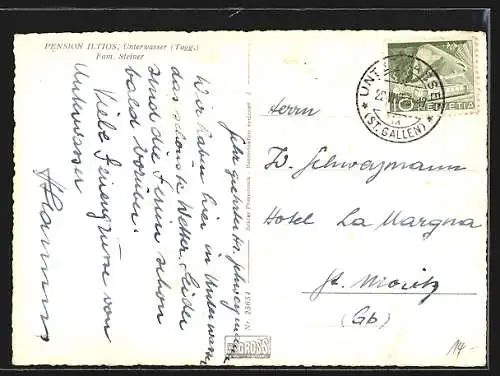 PENSION ILTIOS, Unterwasser (Togg.)
Fam. Steiner
Sehr geehrter Hr. Schwegmann
Wir haben hier in Unterwasser
das schönste Wetter. Leider
sind die Ferien schon
bald vorbei.
Viele Feriengrüsse von
Unterwasser
Nr. 23654
GROSS
UNTERWASSER
(ST. GALLEN)
10
HELVETIA
Herrn
Hotel La Margna
St. Moritz
(Gb)
14.-